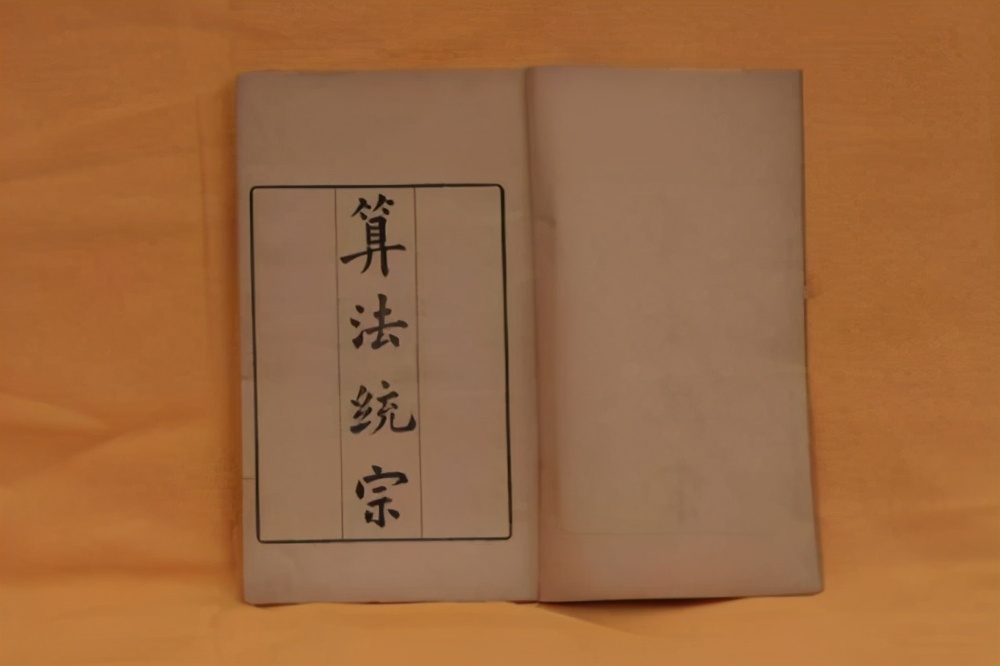 算法统宗